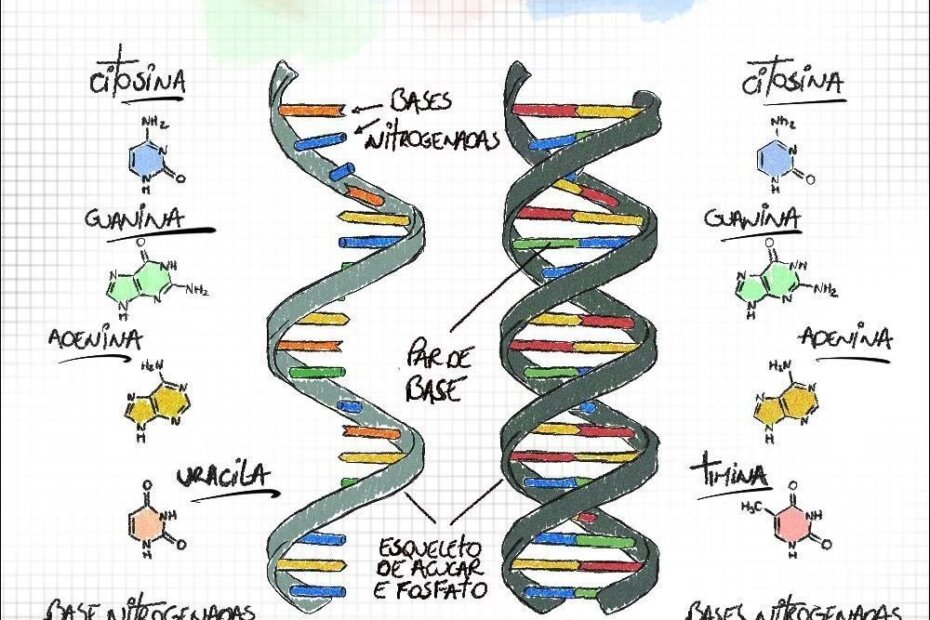 CITOSINA
NH2
N
N
H
O
GUANINA
O
N
NH
N
H
N
NH2
ADENINA
H2N
N
N
N
H
N
URACILA
O
NH
N
H
O
BASE NITROGENADAS
BASES
NITROGENADAS
PAR DE
BASE
ESQUELETO
DE AÇUCAR
E FOSFATO
CITOSINA
NH2
N
N
H
O
GUANINA
O
N
NH
N
H
N
NH2
ADENINA
H2N
N
N
N
H
N
TIMINA
O
H3C
NH
N
H
O
BASES NITROGENADAS